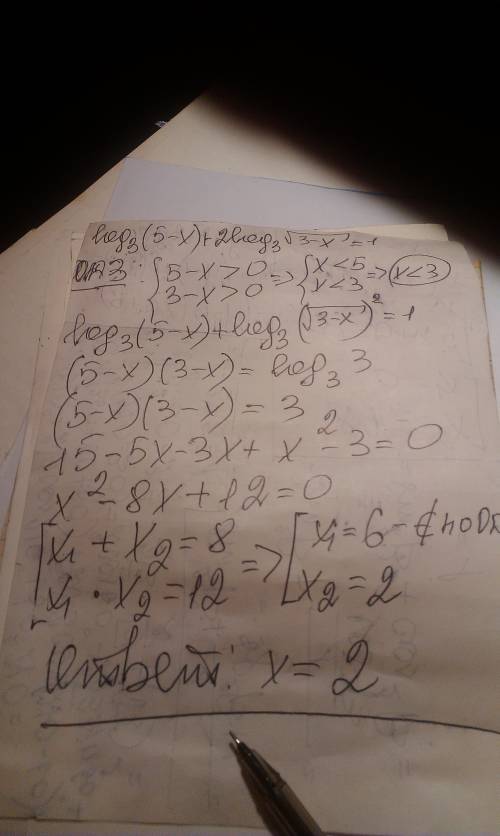 log₃(5-x)+2log₃√(3-x)=1
ОДЗ: { 5-x>0 => { x<5 => x<3
3-x>0 x<3
log₃(5-x)+log₃(√(3-x))²=1
(5-x)(3-x)=log₃3
(5-x)(3-x)=3
15-5x-3x+x²-3=0
x²-8x+12=0
[ x₁+x₂=8 => [ x₁=6-∉ по ОДЗ
x₁·x₂=12 x₂=2
Ответ: x=2